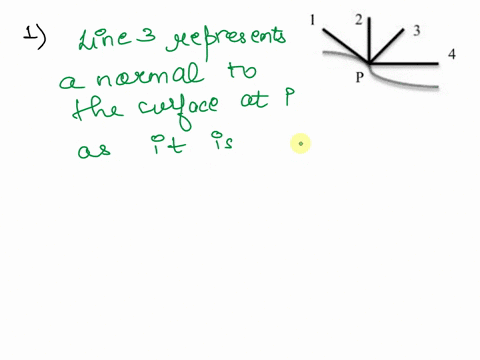 1) Line 3 represents
a normal to
the surface at P
as it is
1 2 3 4
P